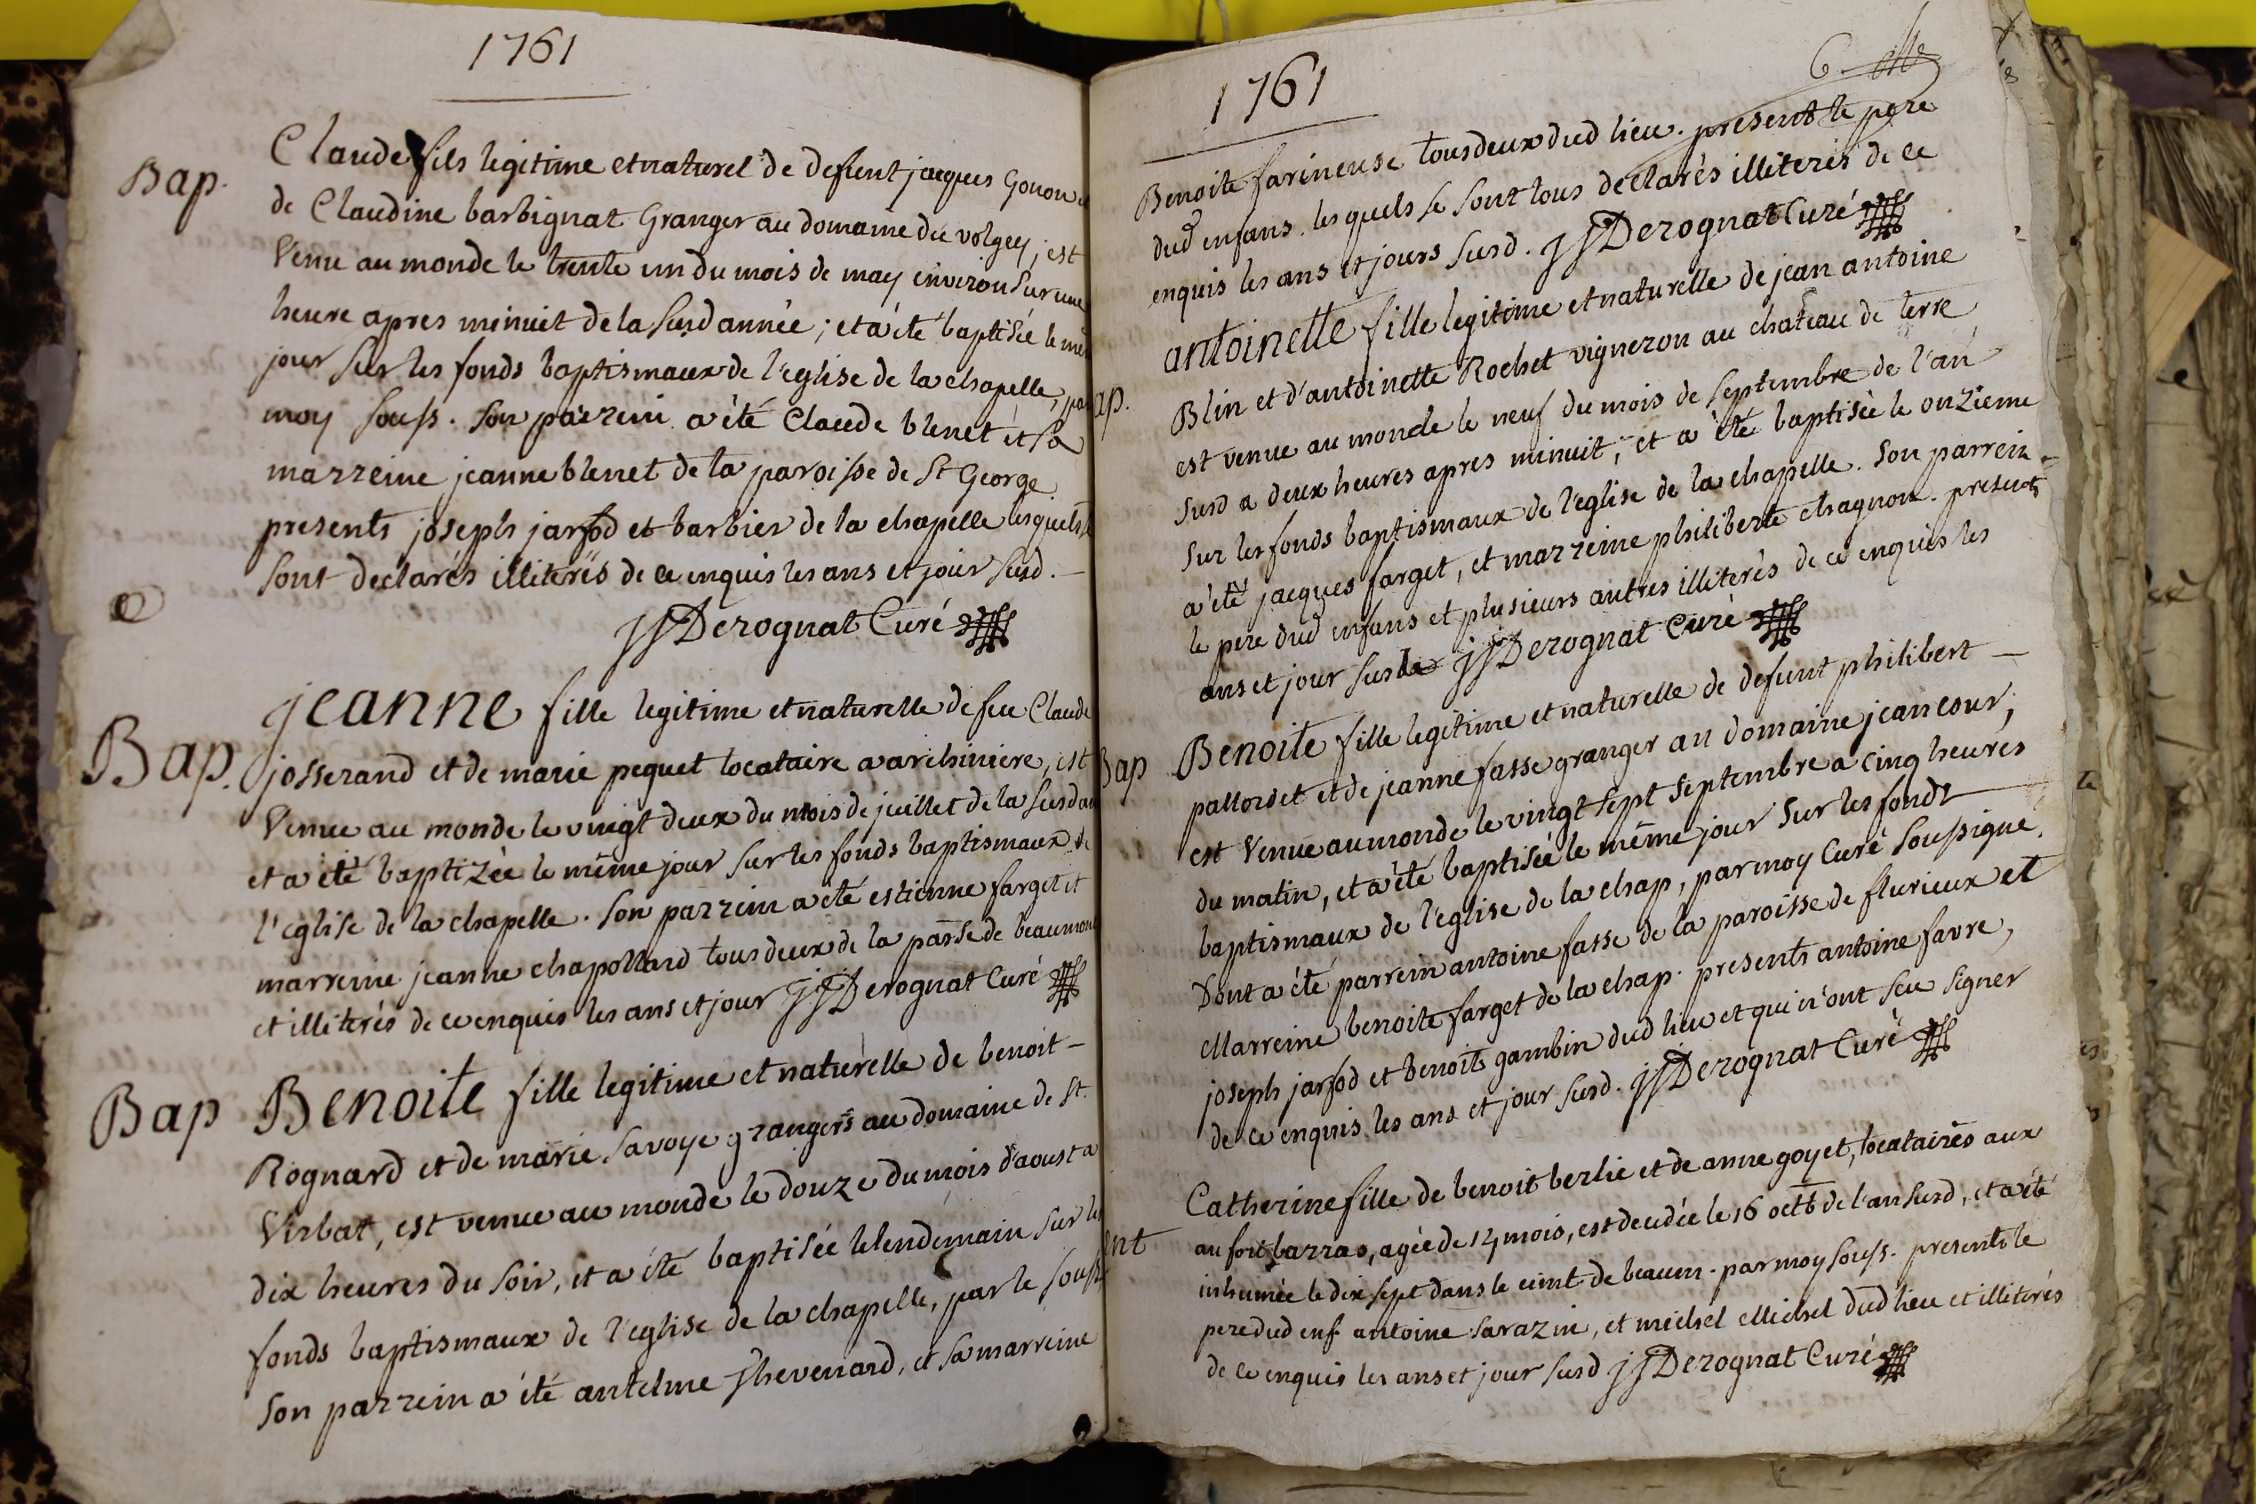 1761
Bap.
Claude fils legitime et naturel de defunt jacques Gonon et
de Claudine barbignat Granger au domaine du volgey; est
Venu au monde le trente un du mois de may environ sur une
heure apres minuit de la susd année; et a été baptisée le mem
jour sur les fonds baptismaux de l'eglise de la chapelle, par
moy souss. son parrein a été Claude blenet et sa
marreine jeanne blenet de la paroisse de St George
presents joseph jarfod et barbier de la chapelle lesquels se
sont declarés illiterés de ce enquis les ans et jour susd. —
JJ Derognat Curé
Bap.
jeanne fille legitime et naturelle de feu Claude
josserand et de marie pequet locataire a archiniere, est
Venue au monde le vingt deux du mois de juillet de la susd an
et a été baptizée le même jour sur les fonds baptismaux de
l'eglise de la chapelle. son parrein a été estienne farget et
marreine jeanne chapollard tous deux de la parsse de beaumont
et illiterés de ce enquis les ans et jour JJ Derognat Curé
Bap
Benoite fille legitime et naturelle de benoit –
Rognard et de marie savoye grangers au domaine de St.
Virbat, est venue au monde le douze du mois d'aoust a
dix heures du soir, et a été baptisée le lendemain sur les
fonds baptismaux de l'eglise de la chapelle, par le souss
son parrein a été antelme Thevenard, et sa marreine
1761
6
Benoite farineuse tous deux dud lieu. present le pere
dud enfans. lesquels se sont tous declarés illiterés de ce
enquis les ans et jours susd. JJ Derognat Curé
ap.
antoinette fille legitime et naturelle de jean antoine
Blin et d'antoinette Rochet vigneron au chateau de terre
est venue au monde le neuf du mois de septembre de l'an
susd a deux heures apres minuit; et a été baptisée le onzieme
sur les fonds baptismaux de l'eglise de la chapelle. son parrein
a été jacques farget, et marreine philiberte chagnon. presents
le pere dud enfans et plusieurs autres illiterés de ce enquis les
ans et jour susd JJ Derognat Curé
Bap
Benoite fille legitime et naturelle de defunt philibert —
pallordet et de jeanne fasse granger au domaine jean cour;
est Venue au monde le vingt sept septembre a cinq heures
du matin, et a été baptisée le même jour sur les fonds
baptismaux de l'eglise de la chap, par moy Curé soussigné.
Dont a été parrein antoine fasse de la paroisse de flurieux et
Marreine benoite farget de la chap. presents antoine favre,
joseph jarfod et benoit gambin dud lieu et qui n'ont sçu signer
de ce enquis les ans et jour susd. JJ Derognat Curé
ent
Catherine fille de benoit berlie et de anne goyet, locataires aux
au fort barras, agée de 14 mois, est decedée le 16 octb de l'an susd, et a été
inhumée le dix sept dans le cimt. de beaum. par moy souss. presents le
pere dud enf antoine sarazin, et michel Michel dud lieu et illiterés
de ce enquis les ans et jour susd JJ Derognat Curé